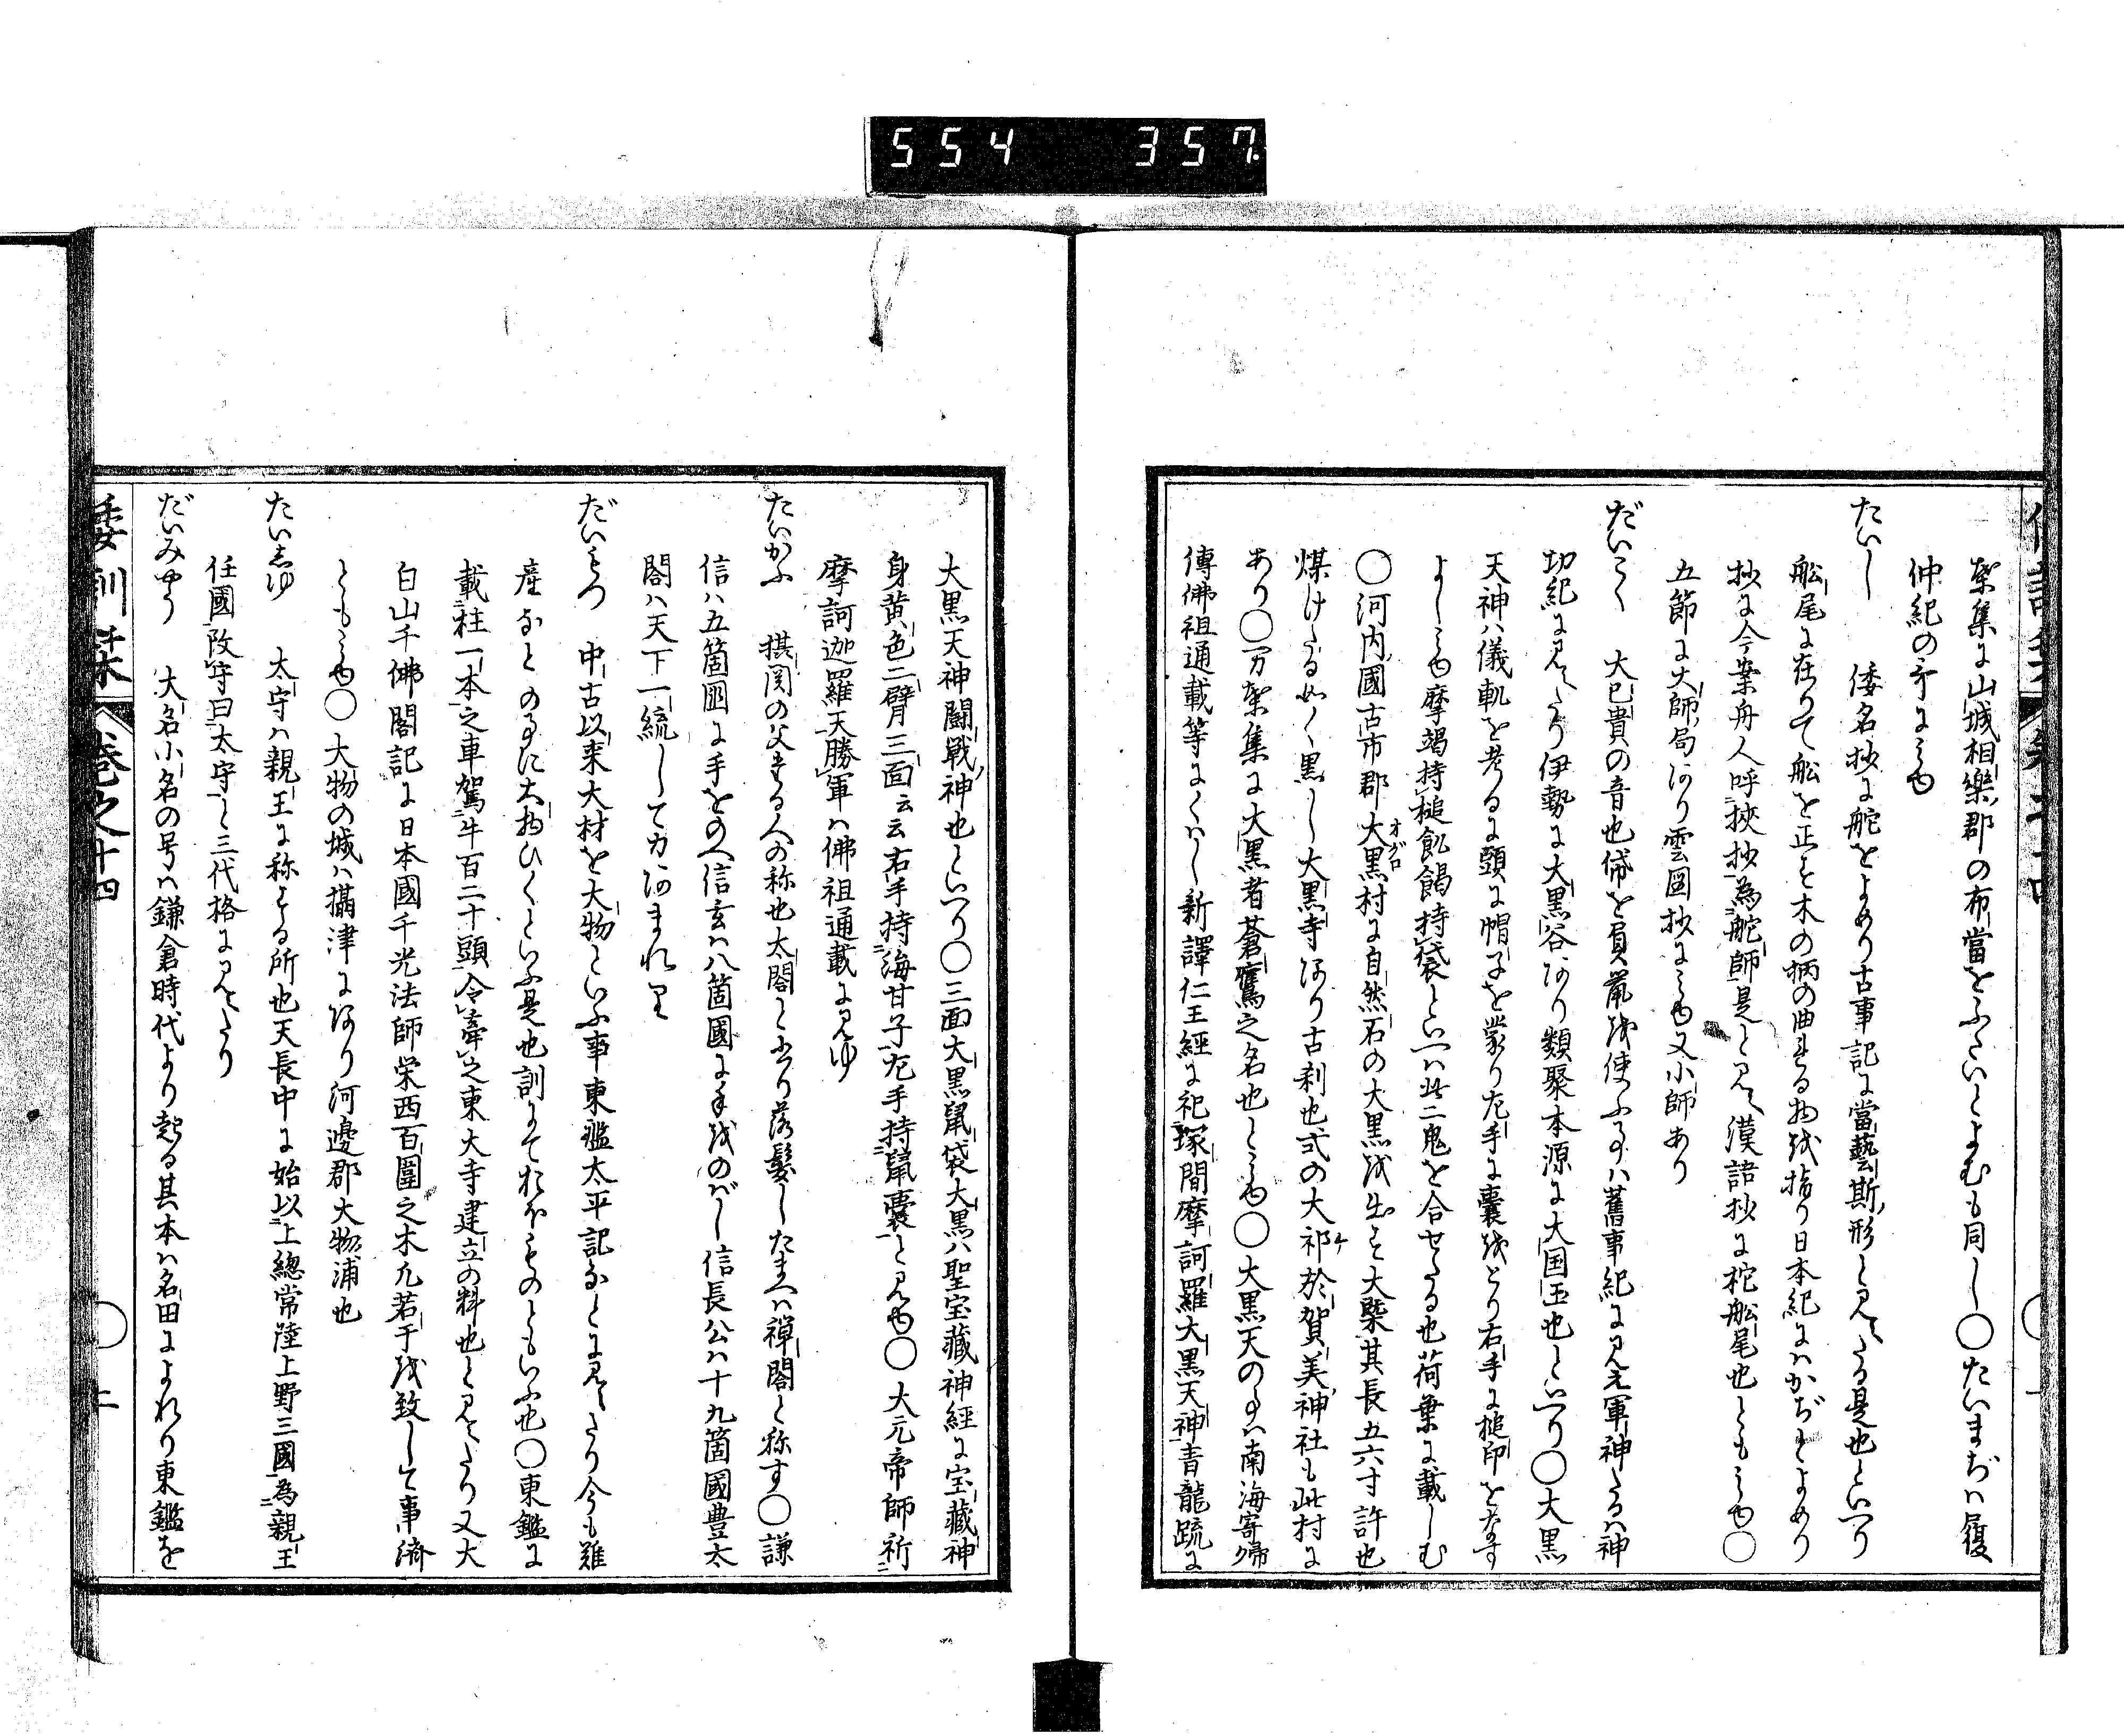 554 357
葉集に山城相樂郡の布當をふたいとよむも同し○たいまぢハ履
仲紀の哥にミゆ
たいし 倭名抄に舵をよめり古事記に當藝斯形と見えたる是也といへり
舩尾に在りて舩を正す木の柄の曲れる物を指り日本紀にハかぢとよめり
抄に今案舟人呼挾抄為舵師是と見え漢語抄に柁舩尾也ともミゆ○
五節に大師局あり雲圖抄にミゆ又小師あり
だいこく 大已貴の音也俗を負鼠を使ふ事ハ舊事紀に見え軍神たるハ神
功紀に見えたり伊勢に大黒谷あり類聚本源に大国玉也といへり○大黒
天神ハ儀軌を考るに頭に帽子を蒙り左手に嚢をとり右手に槌印をなす
よしミゆ摩竭持槌飢餲持袋といへハ此二鬼を合せたる也荷葉に載しむ
○河内國古市郡大黒村に自然石の大黒を出す大槩其長五六寸許也
オグロ
煤けたる如く黒し大黒寺あり古刹也式の大祁於賀美神社も此村に
あり○万葉集に大黒者蒼鷹之名也とミゆ○大黒天の事ハ南海寄歸
傳佛祖通載等にくハし新譯仁王經に祀塚間摩訶羅大黒天神青龍疏に
大黒天神闘戰神也といへり○三面大黒鼠袋大黒ハ聖宝藏神經に宝藏神
身黄色二臂三面云云右手持海甘子左手持鼠嚢と見ゆ○大元帝師祈
摩訶迦羅天勝軍ハ佛祖通載に見ゆ
たいかふ 摂関の父たる人の称也太閤と書り落髪したまへハ禅閤と称す○謙
信ハ五箇國に手をのへ信玄ハ八箇國に手をのばし信長公ハ十九箇國豊太
閤ハ天下一統して力あまれり
だいもつ 中古以来大材を大物といふ事東鑑太平記なとに見えたり今も難
産なとの事に大物ひくといふ是也訓にておほものともいふ也○東鑑に
載柱一本之車駕牛百二十頭令牽之東大寺建立の料也と見えたり又大
白山千佛閣記に日本國千光法師栄西百圍之木凢若干を致して事済
ともミゆ○大物の城ハ攝津にあり河邊郡大物浦也
たいしゆ 太守ハ親王に称する所也天長中に始以上總常陸上野三國為親王
任國改守曰太守と三代格に見えたり
だいみやう 大名小名の号ハ鎌倉時代より起る其本ハ名田によれり東鑑を
倭訓栞 巻之十四